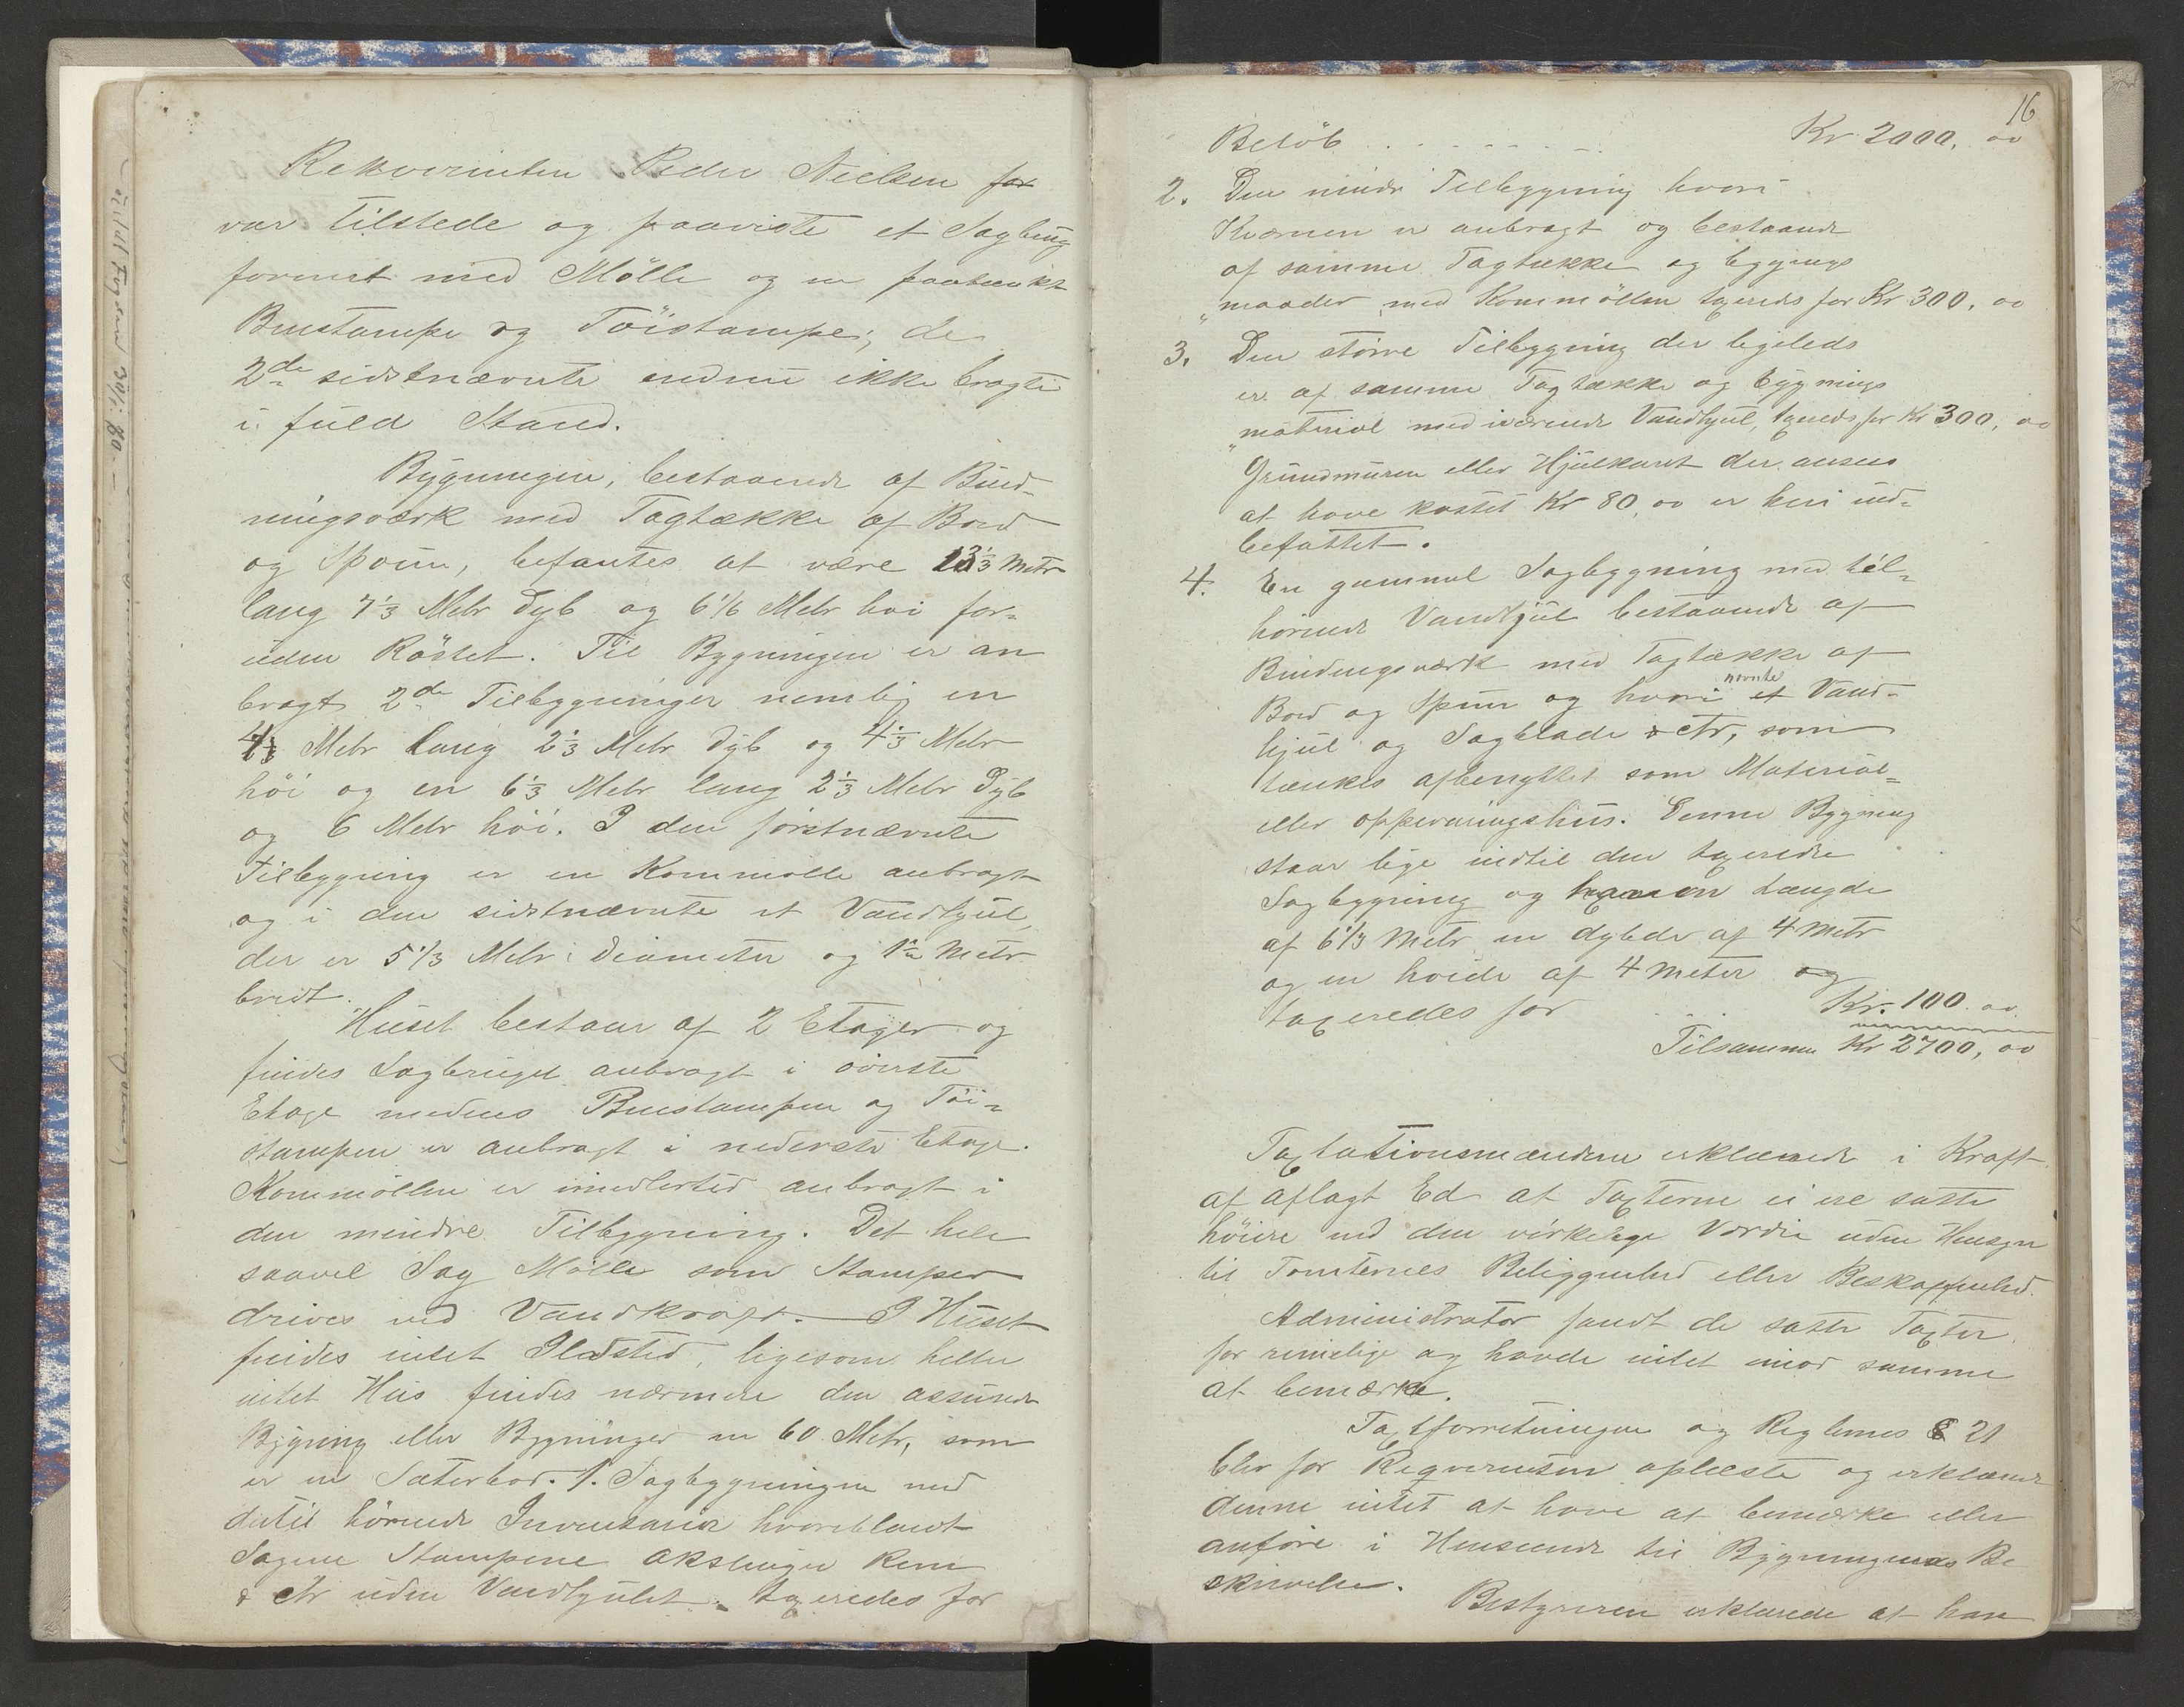 Rekvirenten Peder Nielsen for
var tilstede og paaviste et Sagbrug
forenet med Mölle og en paatænkt
Benstampe og Töistampe; de
2de sidstnævnte endnu ikke bragte
i fuld Stand.
Bygningen, bestaaende af Bind-
ningsværk med Tagtække af Bord
og Spoen, befantes at være 13 1/3 Metr
lang 7 1/3 Metr dyb og 6 1/6 Metr höi for-
uden Röstet. Til Bygningen er an
bragt 2de Tilbygninger nemlig en
4 1/3 Metr lang 2 1/3 Metr dyb og 4 1/3 Metr
höi og en 6 1/3 Metr lang 2 1/3 Metr dyb
og 6 Metr höi. I den förstnævnte
Tilbygning er en Kornmölle anbragt
og i den sidstnævnte et Vandhjul,
der er 5 1/3 Metr i Diameter og 1 Metr
bredt.
Huset bestaar af 2 Etager og
findes Sagbruget anbragt i överste
Etage medens Benstampen og Töi-
stampen er anbragt i nederste Etage.
Kornmöllen er imidlertid anbragt i
den mindre Tilbygning. Det hele
saavel Sag Mölle som Stamper
drives ved Vandkraft. I Huset
findes intet Ildsted, ligesom heller
intet Hus findes nærmere den assurerede
Bygning eller Bygninger en 60 Metr, som
er en Sæterbod. 1. Sagbygningen med
dertil hörende Inventarier hvoriblandt
Sagene Stampene Akslinger Rem
& etc uden Vandhjulet taxeredes for
16
Belöb . . . . . . . . Kr 2000, 00
2. Den mindre Tilbygning hvori
Kværnen er anbragt og bestaaende
af samme Tagtække og bygnings
"maader, med Kornmöllen taxeredes for Kr 300, 00
3. Den större Tilbygning der ligeleds
er af samme Tagtække og bygnings
"material med iværende Vandhjul, taxeredes for Kr 300, 00
Grundmuren eller Hjulkaret der ansees
at have kostet Kr 80,00 er heri ind-
befattet.
4. En gammel Sagbygning med til-
hörende Vandhjul bestaaende af
Bindingsværk med Tagtække af
Bord og Spoen og hvori nævnte et Vand-
hjul og Sagblade & etc, som
tænkes afbenyttet som Material-
eller oppevaringshus. Denne Bygning
staar lige indtil den taxerede
Sagbygning og haver en Længde
af 6 1/3 Metr en dybde af 4 Metr
og en höide af 4 Meter og
taxeredes for . . . Kr. 100. 00.
Tilsammen Kr 2700, 00
Taxtationsmændene erklærede i Kraft
af aflagt Ed at Taxterne ei ere satte
höiere end den virkelige Værdie uden Hensyn
til Tomternes Beliggenhed eller Beskaffenhed.
Administrator fandt de satte Taxter
for rimelige og havde intet imod samme
at bemærke.
Taxtforretningen og Reglernes § 21
blev for Reqvirenten oplæste og erklærede
denne intet at have at bemærke eller
anföre i Henseende til Bygningenes Be
skrivelse.
Bestyreren erklærede at han